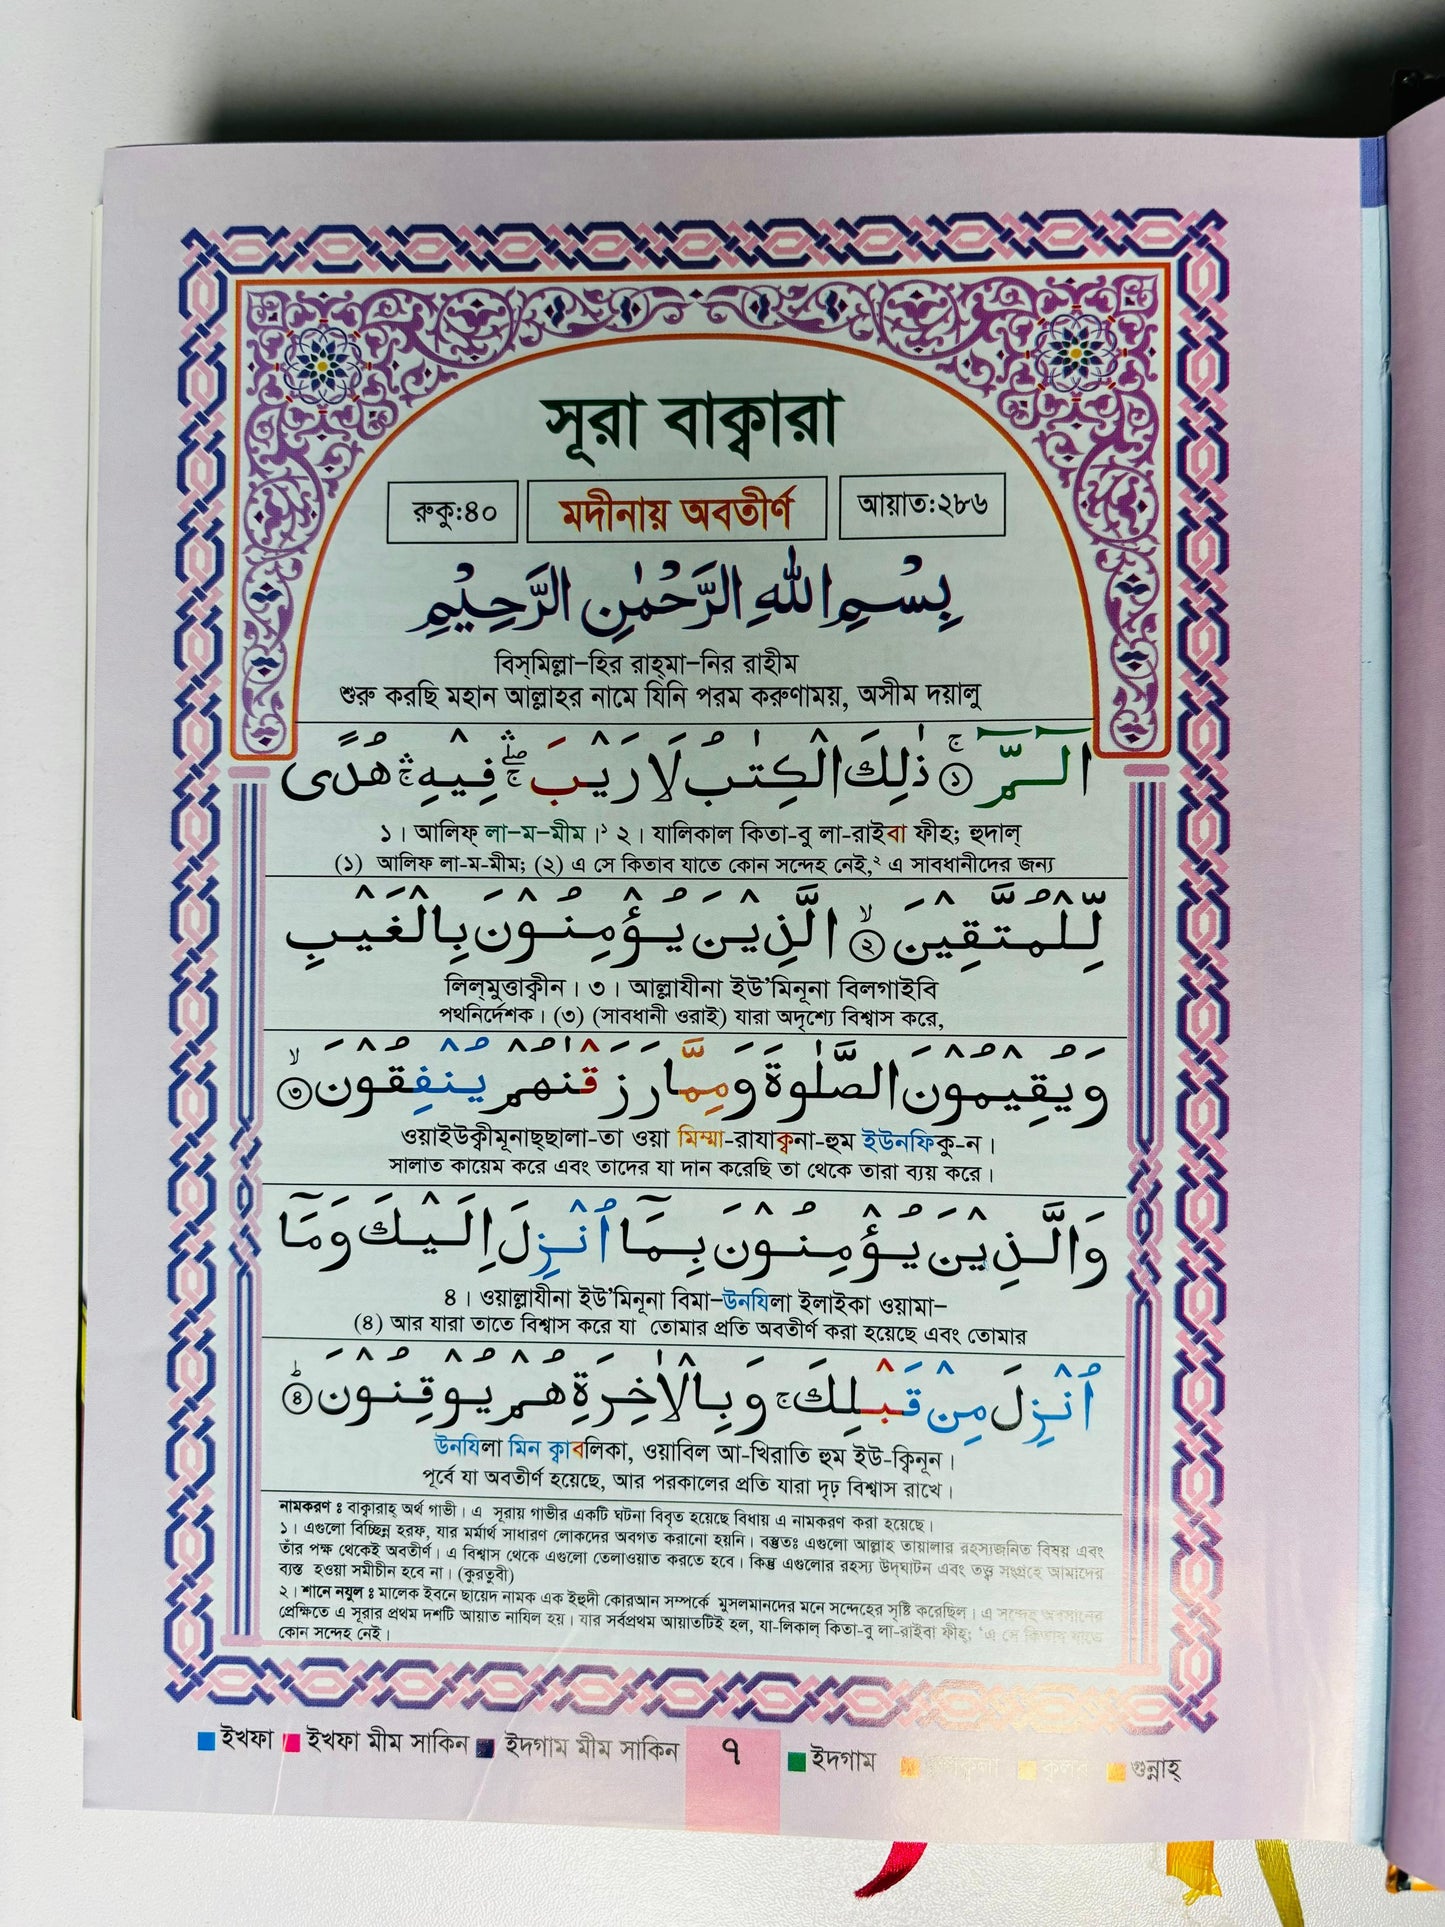 সূরা বাক্বারা
রুকু:৪০ মদীনায় অবতীর্ণ আয়াত:২৮৬
بِسْمِ اللهِ الرَّحْمٰنِ الرَّحِيْمِ
বিস্‌মিল্লা–হির রাহ্‌মা–নির রাহীম
শুরু করছি মহান আল্লাহর নামে যিনি পরম করুণাময়, অসীম দয়ালু
الٓـمّٓ ۚ ① ذٰلِكَ الْكِتٰبُ لَا رَيْبَ ۛۖۚ فِيْهِ ۛۚ هُدًى
১। আলিফ্ লা–ম–মীম।১ ২। যালিকাল কিতা-বু লা-রাইবা ফীহ; হুদাল্
(১) আলিফ লা-ম-মীম; (২) এ সে কিতাব যাতে কোন সন্দেহ নেই,২ এ সাবধানীদের জন্য
لِّلْمُتَّقِيْنَ ۙ ② الَّذِيْنَ يُؤْمِنُوْنَ بِالْغَيْبِ
লিল্‌মুত্তাক্বীন। ৩। আল্লাযীনা ইউ’মিনূনা বিলগাইবি
পথনির্দেশক। (৩) (সাবধানী ওরাই) যারা অদৃশ্যে বিশ্বাস করে,
وَيُقِيْمُوْنَ الصَّلٰوةَ وَمِمَّا رَزَقْنٰهُمْ يُنْفِقُوْنَ ۙ ③
ওয়াইউক্বীমূনাছ্‌ছালা-তা ওয়া মিম্মা-রাযাক্বনা-হুম ইউনফিকু-ন।
সালাত কায়েম করে এবং তাদের যা দান করেছি তা থেকে তারা ব্যয় করে।
وَالَّذِيْنَ يُؤْمِنُوْنَ بِمَآ اُنْزِلَ اِلَيْكَ وَمَآ
৪। ওয়াল্লাযীনা ইউ’মিনূনা বিমা–উনযিলা ইলাইকা ওয়ামা–
(৪) আর যারা তাতে বিশ্বাস করে যা তোমার প্রতি অবতীর্ণ করা হয়েছে এবং তোমার
اُنْزِلَ مِنْ قَبْلِكَ ۚ وَبِالْاٰخِرَةِ هُمْ يُوْقِنُوْنَ ؕ ④
উনযিলা মিন ক্বাবলিকা, ওয়াবিল আ-খিরাতি হুম ইউ-ক্বিনূন।
পূর্বে যা অবতীর্ণ হয়েছে, আর পরকালের প্রতি যারা দৃঢ় বিশ্বাস রাখে।
নামকরণ ঃ বাক্বারাহ্ অর্থ গাভী। এ সূরায় গাভীর একটি ঘটনা বিবৃত হয়েছে বিধায় এ নামকরণ করা হয়েছে।
১। এগুলো বিচ্ছিন্ন হরফ, যার মর্মার্থ সাধারণ লোকদের অবগত করানো হয়নি। বস্তুতঃ এগুলো আল্লাহ তায়ালার রহস্যজনিত বিষয় এবং
তাঁর পক্ষ থেকেই অবতীর্ণ। এ বিশ্বাস থেকে এগুলো তেলাওয়াত করতে হবে। কিন্তু এগুলোর রহস্য উদ্‌ঘাটন এবং তত্ত্ব সংগ্রহে আমাদের
ব্যস্ত হওয়া সমীচীন হবে না। (কুরতুবী)
২। শানে নযূল ঃ মালেক ইবনে ছায়েদ নামক এক ইহুদী কোরআন সম্পর্কে মুসলমানদের মনে সন্দেহের সৃষ্টি করেছিল। এ সন্দেহ অবসানের
প্রেক্ষিতে এ সূরার প্রথম দশটি আয়াত নাযিল হয়। যার সর্বপ্রথম আয়াতটিই হল, যা-লিকাল্ কিতা-বু লা-রাইবা ফীহ্; ‘এ সে কিতাব যাতে
কোন সন্দেহ নেই।
ইখফা ইখফা মীম সাকিন ইদগাম মীম সাকিন ৭ ইদগাম গুন্নাহ্